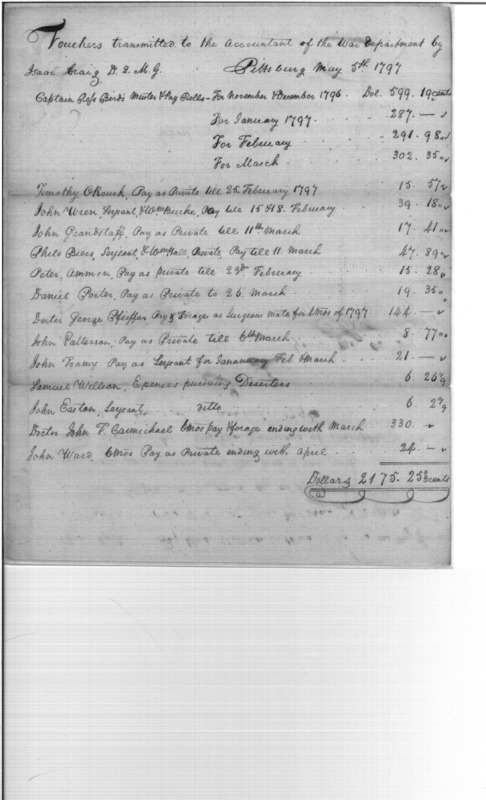 Vouchers transmitted to the Accountant of the War Department by
Isaac Craig D.Q.M.G. Pittsburg May 5th 1797
Captain Ross Bird's Muster & Pay Rolls – For November & December 1796 Dol. 599. 19 cents
For January 1797. 287. —
For February 291. 98
For March 302. 35
Timothy ORourk, Pay as Private till 25 February 1797 15. 57
John Wren Serjeant, & Wm Burke, Pay till 15 & 18. February 39. 18
John Grandstaff, Pay as Private till 11th March 17. 41
Philo Beers, Serjeant, & Wm Hall, Private, Pay till 11. March 47. 89
Peter Ammon, Pay as private till 23d February 15. 28
Daniel Porter, Pay as Private to 26 March 19. 35
Doctor George Pfeiffer Pay & Forage as Surgeons mate for 4 Mos of 1797 144. —
John Patterson, Pay as Private till 6th March 8. 77
John Pay as Serjeant for January Feb & March 21. —
Samuel Willson, Expences pursuing Deserters 6. 26
John Easton, Serjeant, ditto 6. 2
Doctor John F. Carmichael 6 Mos pay & forage ending with March 330.
John Ward 6 Mos Pay as Private ending with April 24. —
Dollars 2175. 25 cents